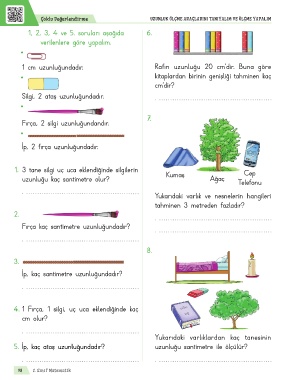 Çoklu Değerlendirme
UZUNLUK ÖLÇME ARAÇLARINI TANIYALIM VE ÖLÇME YAPALIM
1, 2, 3, 4 ve 5. soruları aşağıda
verilenlere göre yapalım.
1 cm uzunluğundadır.
Silgi, 2 ataş uzunluğundadır.
Fırça, 2 silgi uzunluğundadır.
İp, 2 fırça uzunluğundadır.
1. 3 tane silgi uç uca eklendiğinde silgilerin
uzunluğu kaç santimetre olur?
2.
Fırça kaç santimetre uzunluğundadır?
3.
İp, kaç santimetre uzunluğundadır?
4. 1 Fırça, 1 silgi, uç uca eklendiğinde kaç
cm olur?
5. İp, kaç ataş uzunluğundadır?
6.
Rafın uzunluğu 20 cm'dir. Buna göre
kitaplardan birinin genişliği tahminen kaç
cm'dir?
7.
Kumaş
Ağaç
Cep
Telefonu
Yukarıdaki varlık ve nesnelerin hangileri
tahminen 3 metreden fazladır?
8.
Yukarıdaki varlıklardan kaç tanesinin
uzunluğu santimetre ile ölçülür?
2. Sınıf Matematik